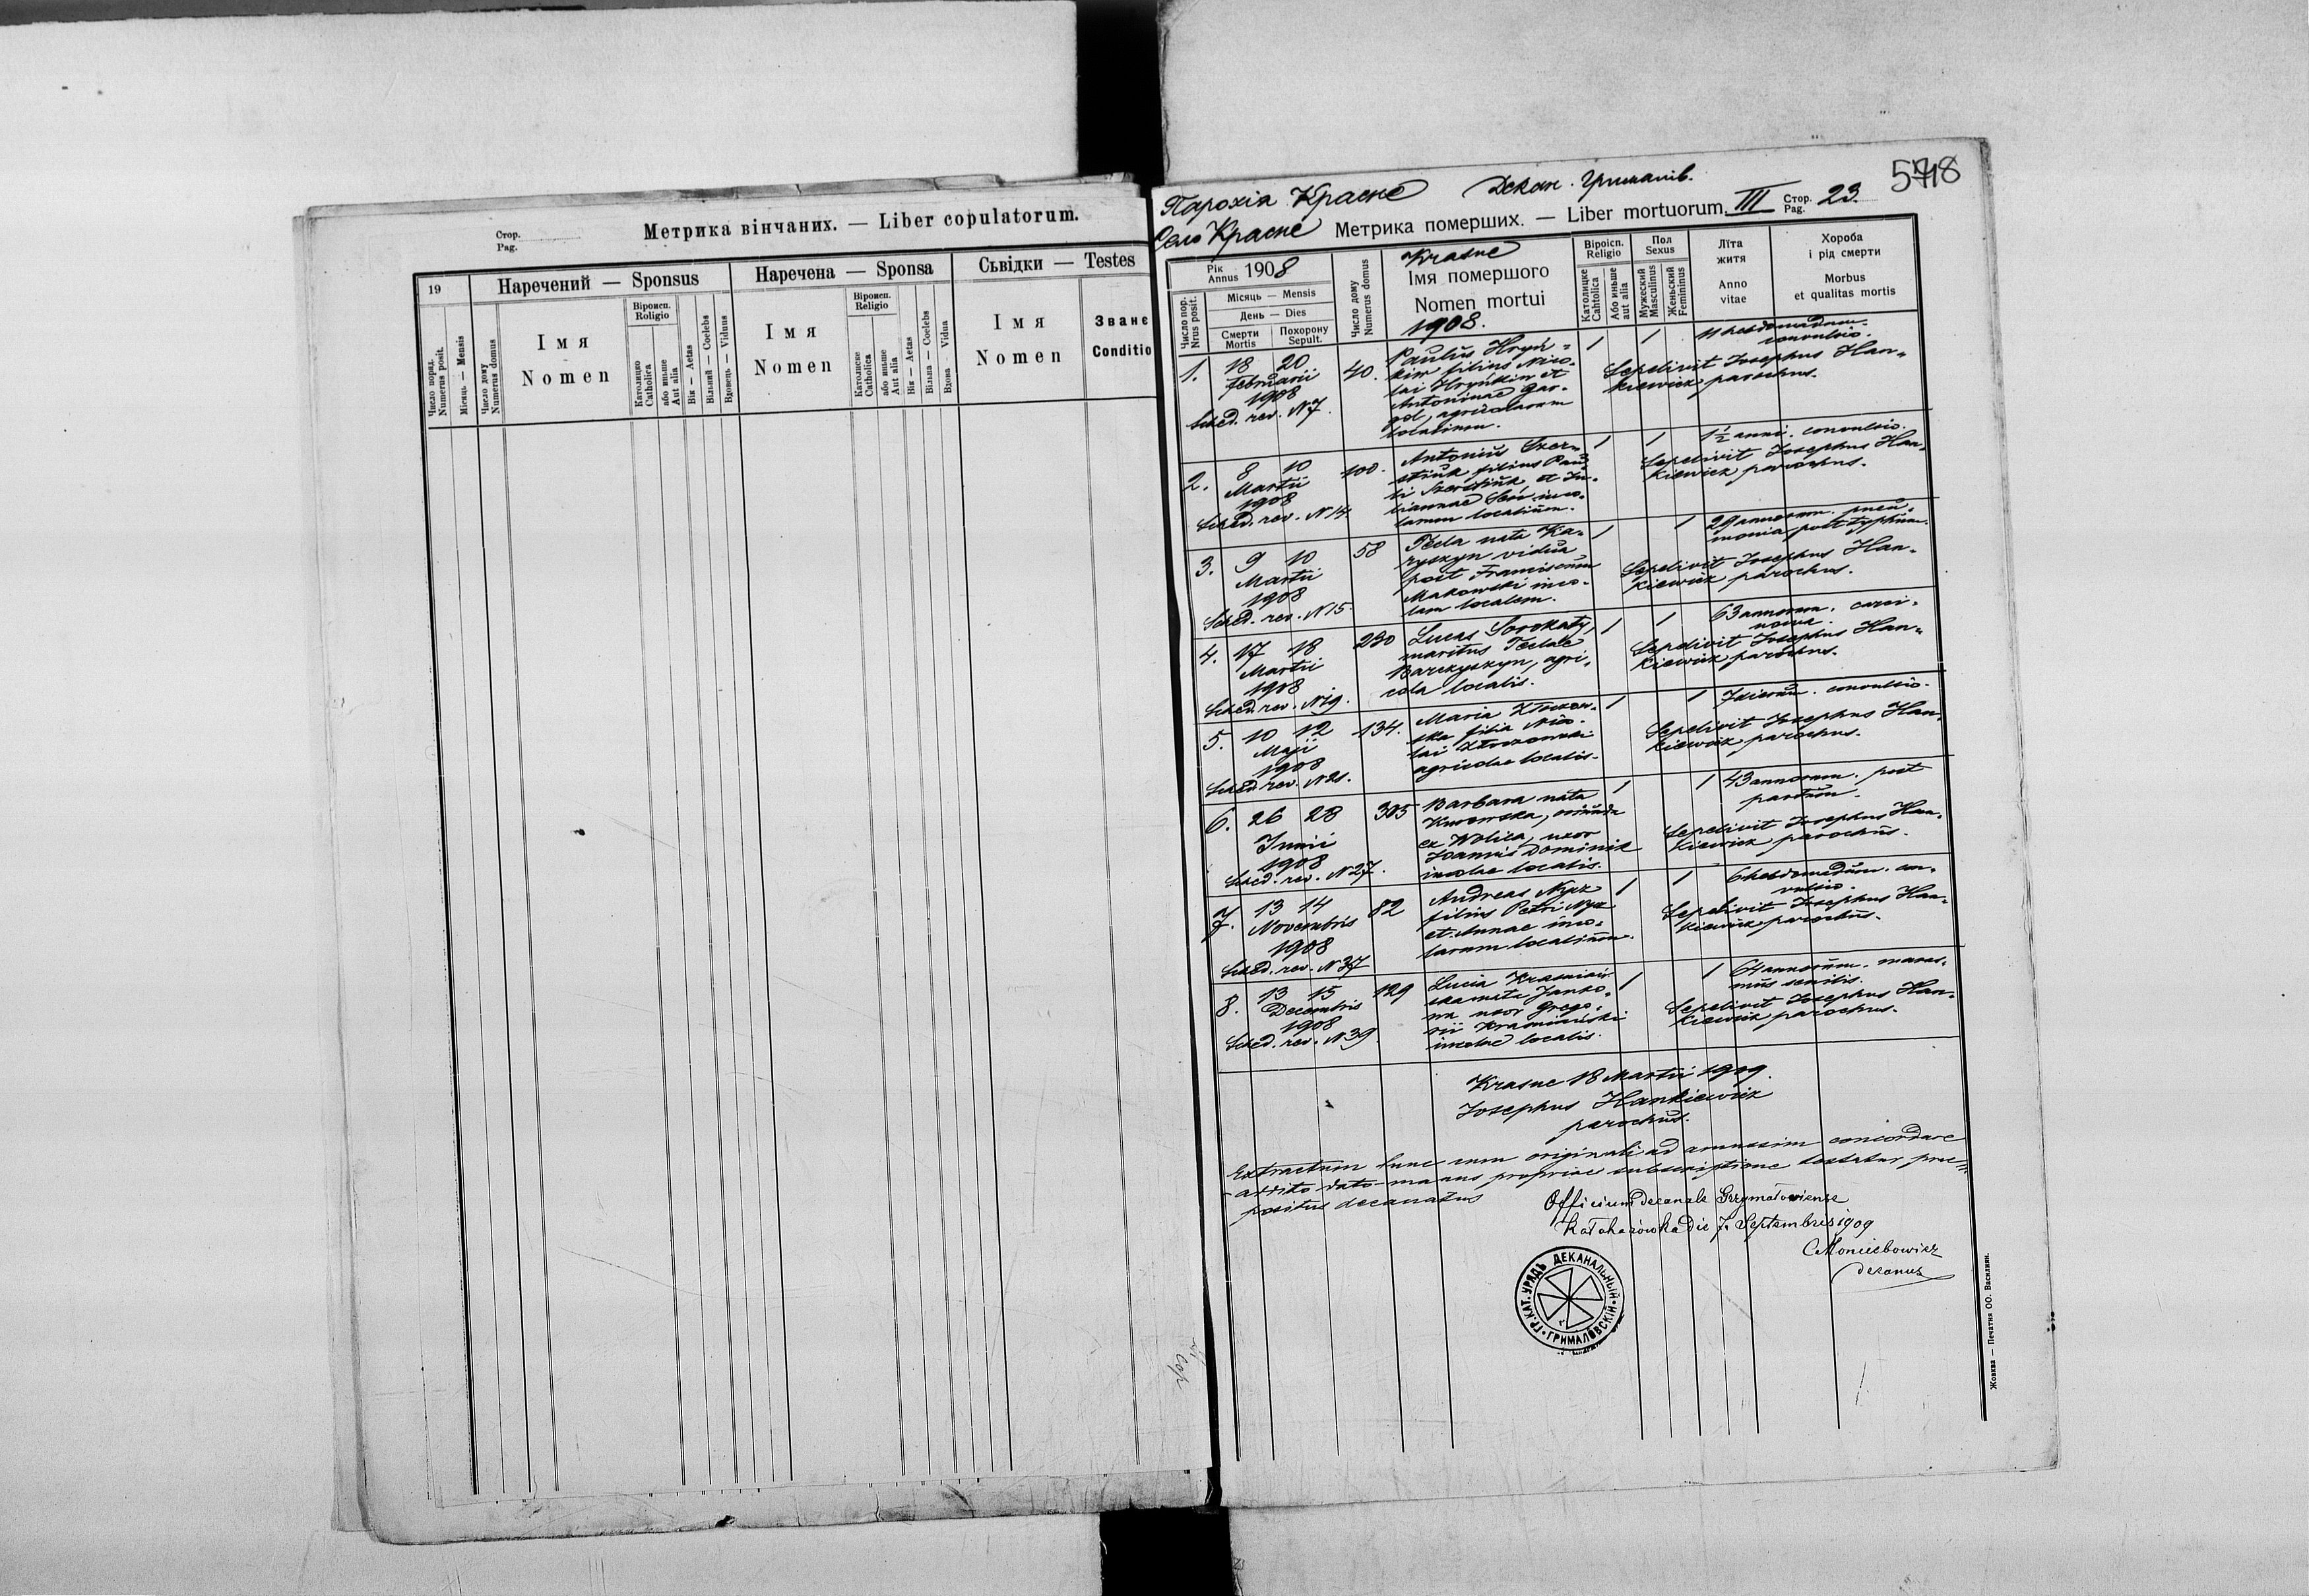 Стор.
Pag.
Метрика вінчаних. — Liber copulatorum.
19
Наречений — Sponsus
Наречена — Sponsa
Сьвідки — Testes
Число поряд.
Numerus posit.
Місяць — Mensis
Число дому
Numerus domus
Імя
Nomen
Віроисп.
Religio
Католицке
Catholica
або иньше
Aut alia
Вік — Aetas
Вільний — Coelebs
Вдовець — Viduus
Імя
Nomen
Віроисп.
Religio
Католиске
Catholica
або иньше
Aut alia
Вік — Aetas
Вільна — Coelebs
Вдова - Vidua
Імя
Nomen
Зване
Conditio
Парохія Красне Декан. Грималів.
Село Красне Метрика померших. — Liber mortuorum. III Стор. Pag. 23.
Рік
Annus 1908
Число пор.
Nrus posit.
Місяць — Mensis
День — Dies
Смерти
Mortis
Похорону
Sepult.
Число дому
Numerus domus
Krasne
Імя помершого
Nomen mortui
1908.
Віроісп.
Religio
Католицке
Cahtolica
Або иньше
aut alia
Пол
Sexus
Мужеский
Masculinus
Женьский
Femininus
Лїта
житя
Anno
vitae
Хороба
і рід смерти
Morbus
et qualitas mortis
1. 18 20 40. Paulus Hryń- 1 1 11 hebdomadum.
Februarii kiw filius Nico- convulsio.
1908 lai Hryńkiw et Sepelivit Josephus Han-
Sched. rev. N 7. Antoninae Gar- kiewicz parochus.
gol, agricolarum
localium.
2. 8 10 100. Antonius Szer- 1 1 1 1/2 anni. convulsio.
Martii filius Pau- Sepelivit Josephus Han-
1908 li et Ju- kiewicz parochus.
Sched. rev. N 14. liannae inco-
larum localium.
3. 9 10 58 Tecla nata Ka- 1 1 29 annorum. pneu-
Martii ryszyn vidua monia post typhum.
1908 post Franciscum Sepelivit Josephus Han-
Sched. rev. N 15. Makowski inco- kiewicz parochus.
lam localem.
4. 17 18 230 Lucas Sorokaty, 1 1 63 annorum. carci-
Martii maritus Teclae noma.
1908 Barczyszyn, agri- Sepelivit Josephus Han-
Sched. rev. N 19. cola localis. kiewicz parochus.
5. 10 12 134. Maria Złoczow- 1 1 7 dierum. convulsio.
Maji ska filia Nico- Sepelivit Josephus Han-
1908 lai Złoczowski kiewicz parochus.
Sched. rev. N 21. agricolae localis.
6. 26 28 305 Barbara nata 1 1 43 annorum. post
Junii Kurowska, oriunda partum.
1908 ex Wolica, uxor Sepelivit Josephus Han-
Sched. rev. N 27. Joannis Dominik kiewicz parochus.
incolae localis.
7. 13 14 82 Andreas Nycz 1 1 6 hebdomadum. con-
Novembris filius Petri Nycz vulsio.
1908 et Annae inco- Sepelivit Josephus Han-
Sched. rev. N 37 larum localium. kiewicz parochus.
8. 13 15 129 Lucia Krasniań- 1 1 64 annorum. maras-
Decembris ska nata Janko- mus senilis.
1908 wa uxor Grego- Sepelivit Josephus Han-
Sched. rev. N 39. rii Krasniański kiewicz parochus.
incolae localis.
Krasne 18 Martii 1909.
Josephus Hankiewicz
parochus.
Extractum hunc cum originali ad amussim concordare
addito dato manus propriae subscriptione testatur prae-
positus decanatus
Officium decanale Grzymałoviense
Kałaharówka die 7. Septembris 1909
decanus
ГР.КАТ. УРЯДЪ ДЕКАНАЛЬНЫЙ ГРИМАЛОВСКІЙ
Жовква — Печатня ОО. Василиян.